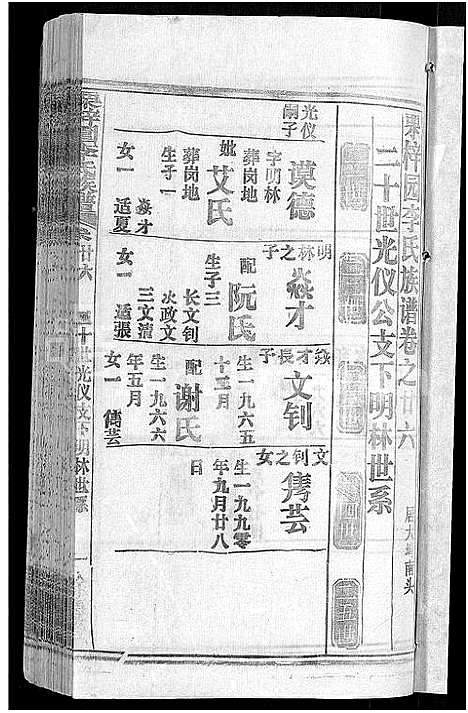 栗梓园李氏族谱卷之廿六
二十世光仪公支下明林世系
光仪嗣子
谟德
字明林
葬岗地
妣 艾氏
葬岗地
生子一
焱才
女一 适夏
明林之子
焱才
配 阮氏
生子三
长文钊
次政文
三文清
女一 适張
焱才長子
文钊
生一九六五
十二月
配 谢氏
生一九六六
年五月
女一 雋芸
文钊之女
雋芸
生一九九零
年九月廿八
日
二十世光仪支下明林世系